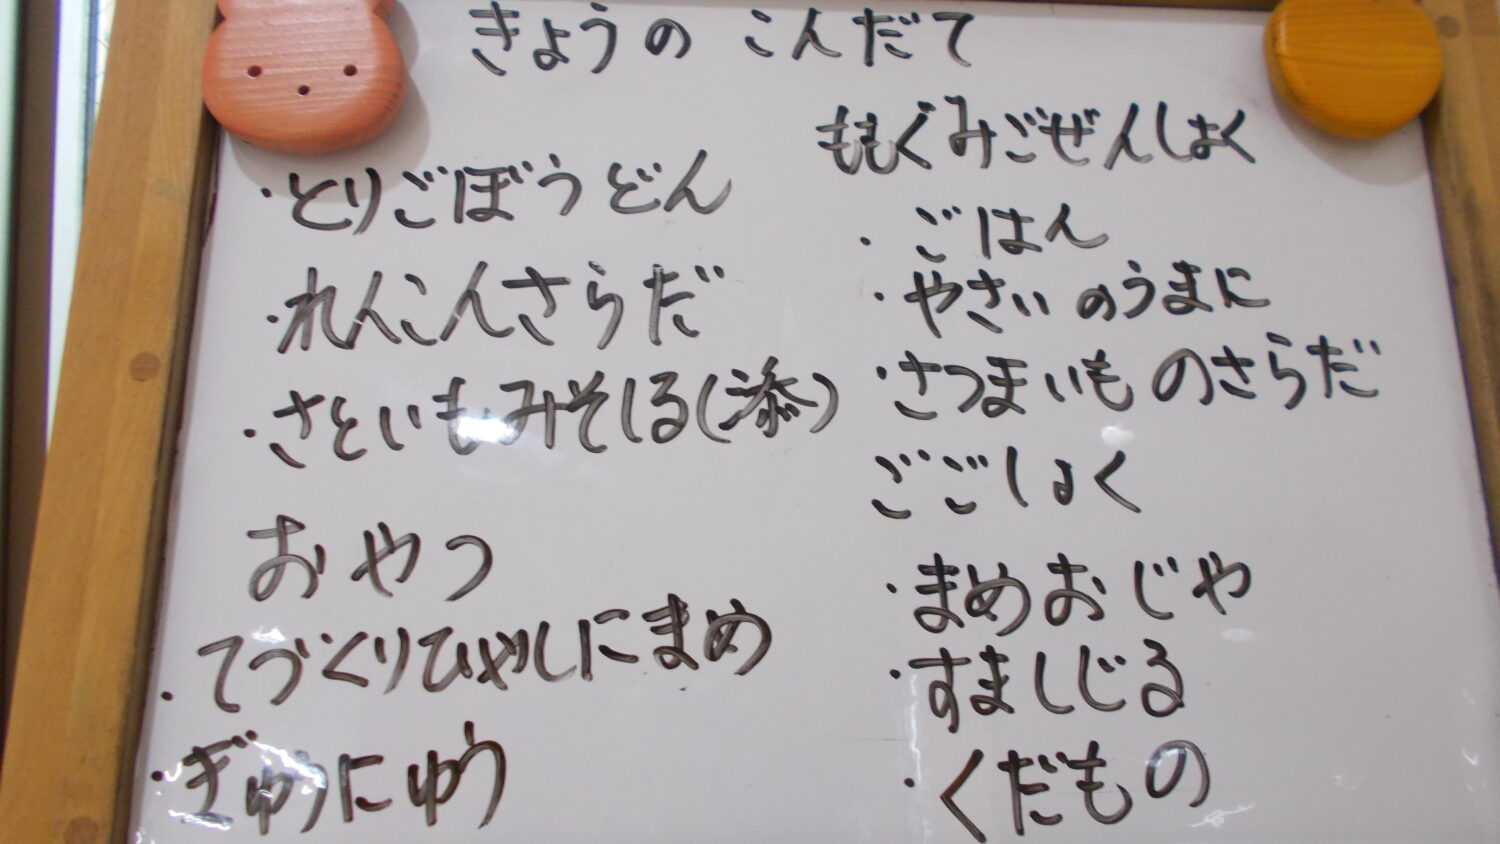 きょうの こんだて
・とりごぼううどん
・れんこんさらだ
・さといもみそしる(添)
おやつ
・てづくりひやしにまめ
・ぎゅうにゅう
ももぐみごぜんしょく
・ごはん
・やさいのうまに
・さつまいものさらだ
ごごしょく
・まめおじや
・すましじる
・くだもの